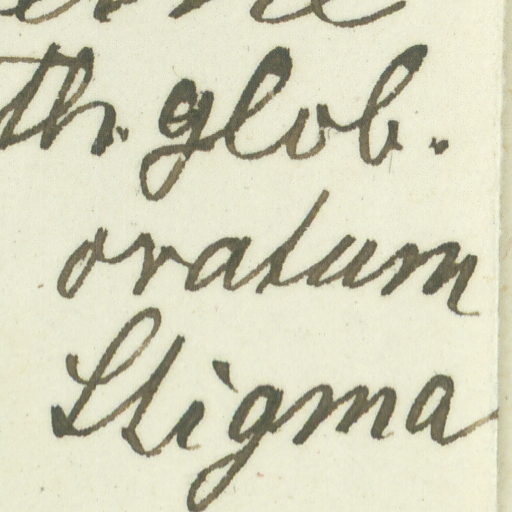 th. glob.
ovatum
Stigma